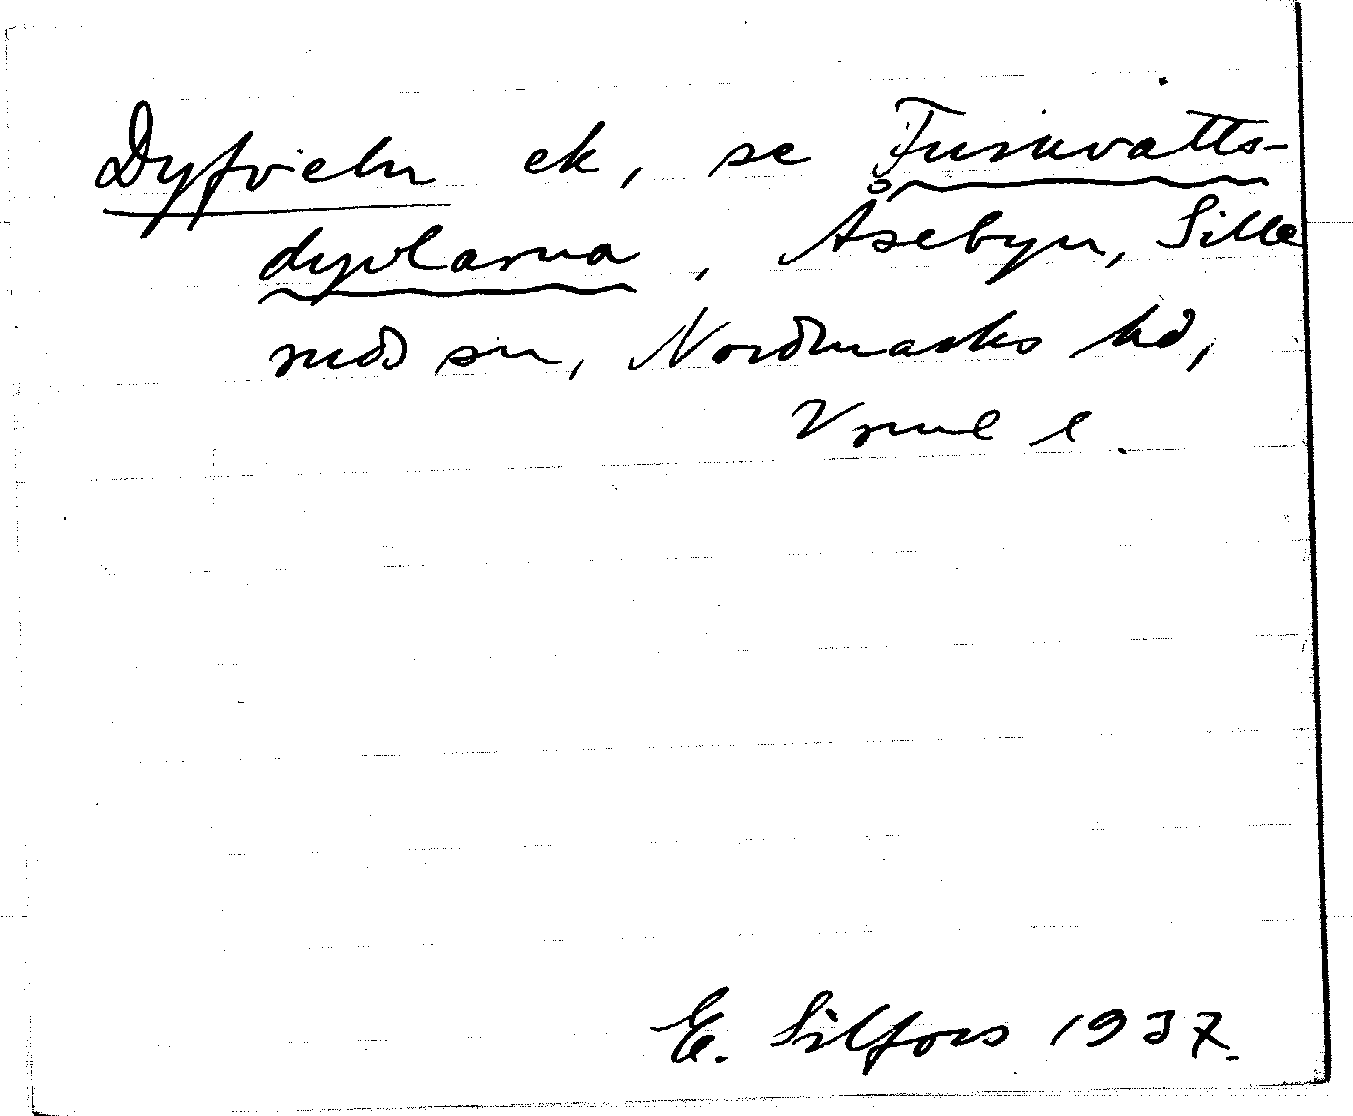 Dyfveln ek, se Furuvatts-
dyvlarna, Åsebyn, Sille
ruds sn, Nordmarks hd,
Vrml l.
E. Silfors 1937.